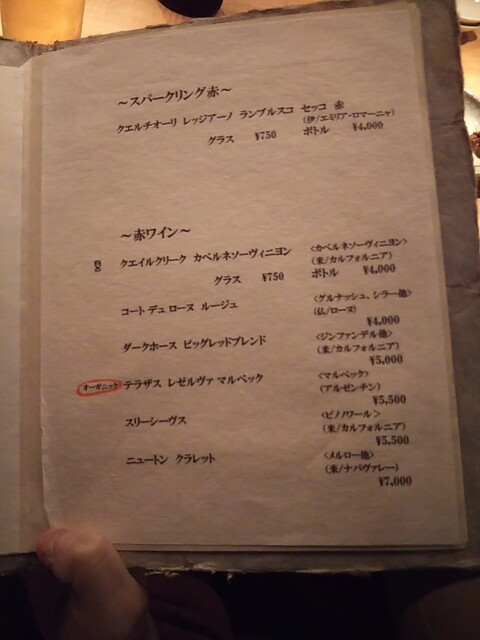 ～スパークリング赤～
クエルチオーリ レッジアーノ ランブルスコ セッコ 赤
(伊/エミリア・ロマーニャ)
グラス ¥750 ボトル ¥4,000
～赤ワイン～
クエイルクリーク カベルネソーヴィニヨン <カベルネソーヴィニヨン>
(米/カルフォルニア)
グラス ¥750 ボトル ¥4,000
コート デュ ローヌ ルージュ <グルナッシュ、シラー他>
(仏/ローヌ)
¥4,000
ダークホース ビッグレッドブレンド <ジンファンデル他>
(米/カルフォルニア)
¥5,000
オーガニック テラザス レゼルヴァ マルベック <マルベック>
(アルゼンチン)
¥5,500
スリーシーヴス <ピノワール>
(米/カルフォルニア)
¥5,500
ニュートン クラレット <メルロー他>
(米/ナパヴァレー)
¥7,000